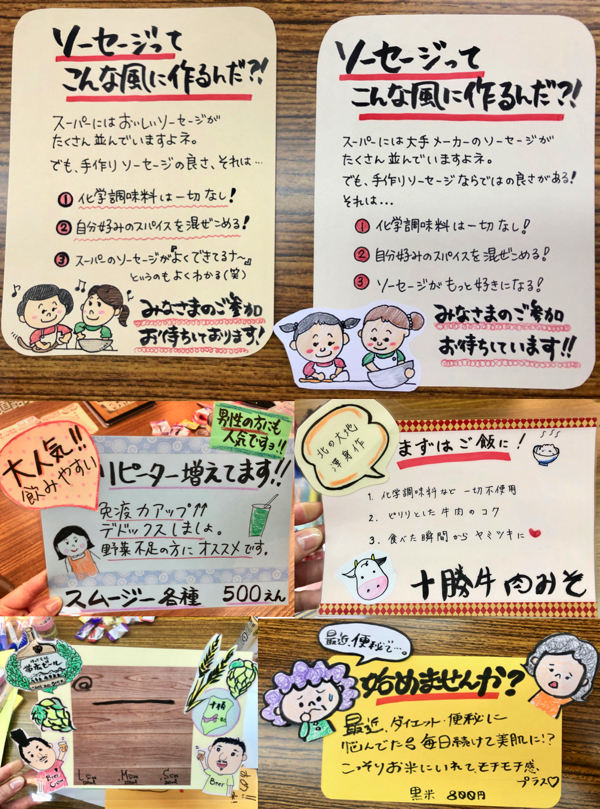 ソーセージって
こんな風に作るんだ?!
スーパーにはおいしいソーセージが
たくさん並んでいますよネ。
でも、手作りソーセージの良さ、それは…
① 化学調味料は一切なし!
② 自分好みのスパイスを混ぜこめる!
③ スーパーのソーセージが『よくできてるナ〜』
というのもよくわかる(笑)
みなさまのご参加
お待ちしております!
ソーセージって
こんな風に作るんだ?!
スーパーには大手メーカーのソーセージが
たくさん並んでいますよネ。
でも、手作りソーセージならではの良さがある!
それは…
① 化学調味料は一切なし!
② 自分好みのスパイスを混ぜこめる!
③ ソーセージがもっと好きになる!
みなさまのご参加
お待ちしています!!
大人気!!
飲みやすい
男性の方にも
人気ですョ!!
リピーター増えてます!!
免疫力アップ↑↑
デドックスしましょ。
野菜不足の方にオススメです。
スムージー各種 500えん
北の大地
渾身作
まずはご飯に!
1. 化学調味料など一切不使用
2. ピリリとした牛肉のコク
3. 食べた瞬間からヤミツキに
十勝牛肉みそ
帯広ビール
十勝
Beer
最近、便秘で…。
始めませんか?
最近、ダイエット・便秘に
悩んでたら毎日続けて美肌に!?
こっそりお米にいれてモチモチ感
プラス♡
黒米 800円